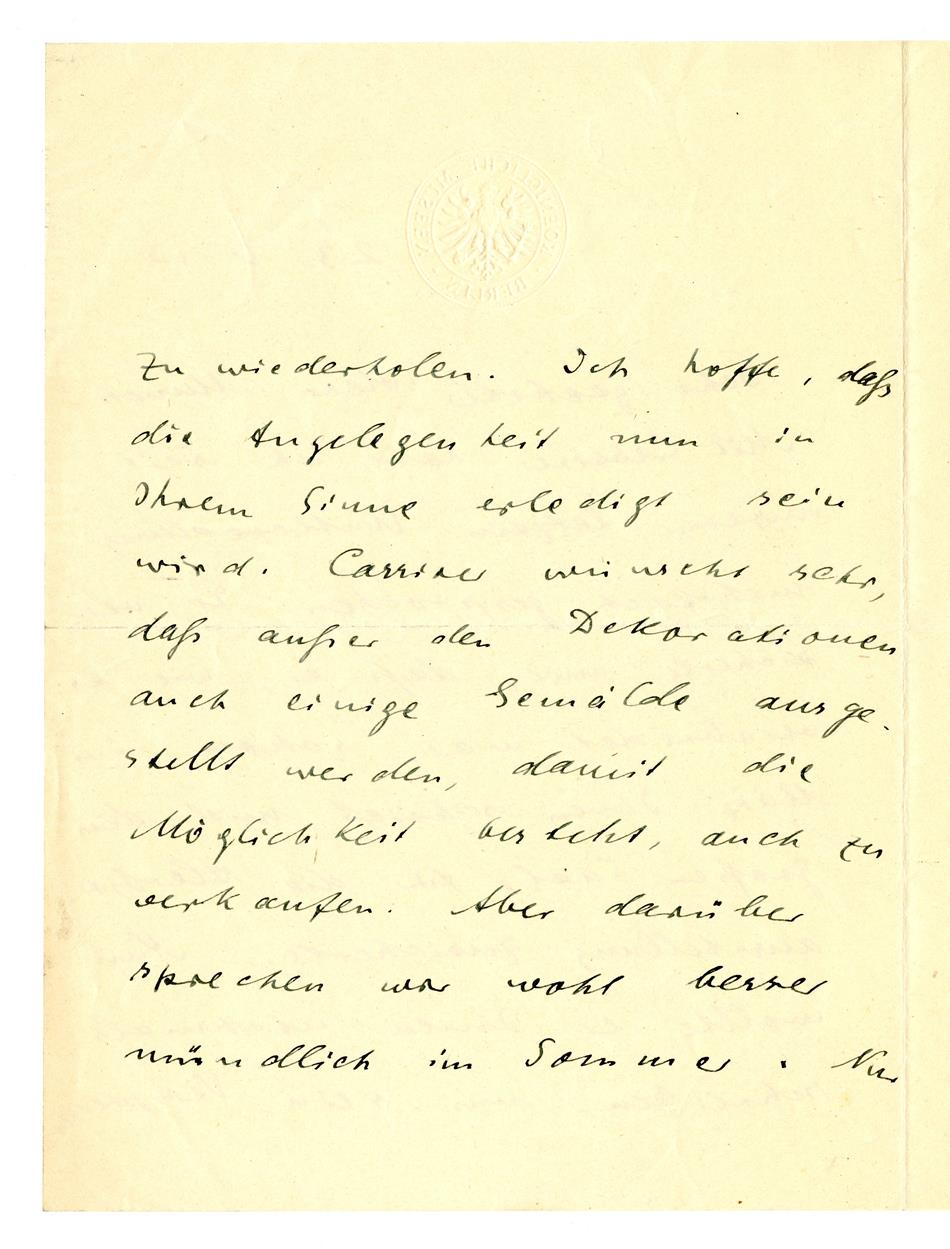 KOENIGLICHE MUSEEN BERLIN
zu wiederholen. Ich hoffe, daß
die Angelegenheit nun in
Ihrem Sinne erledigt sein
wird. Cassirer wünscht sehr,
daß außer den Dekorationen
auch einige Gemälde ausge-
stellt werden, damit die
Möglichkeit besteht, auch zu
verkaufen. Aber darüber
sprechen wir wohl besser
mündlich im Sommer. Nur